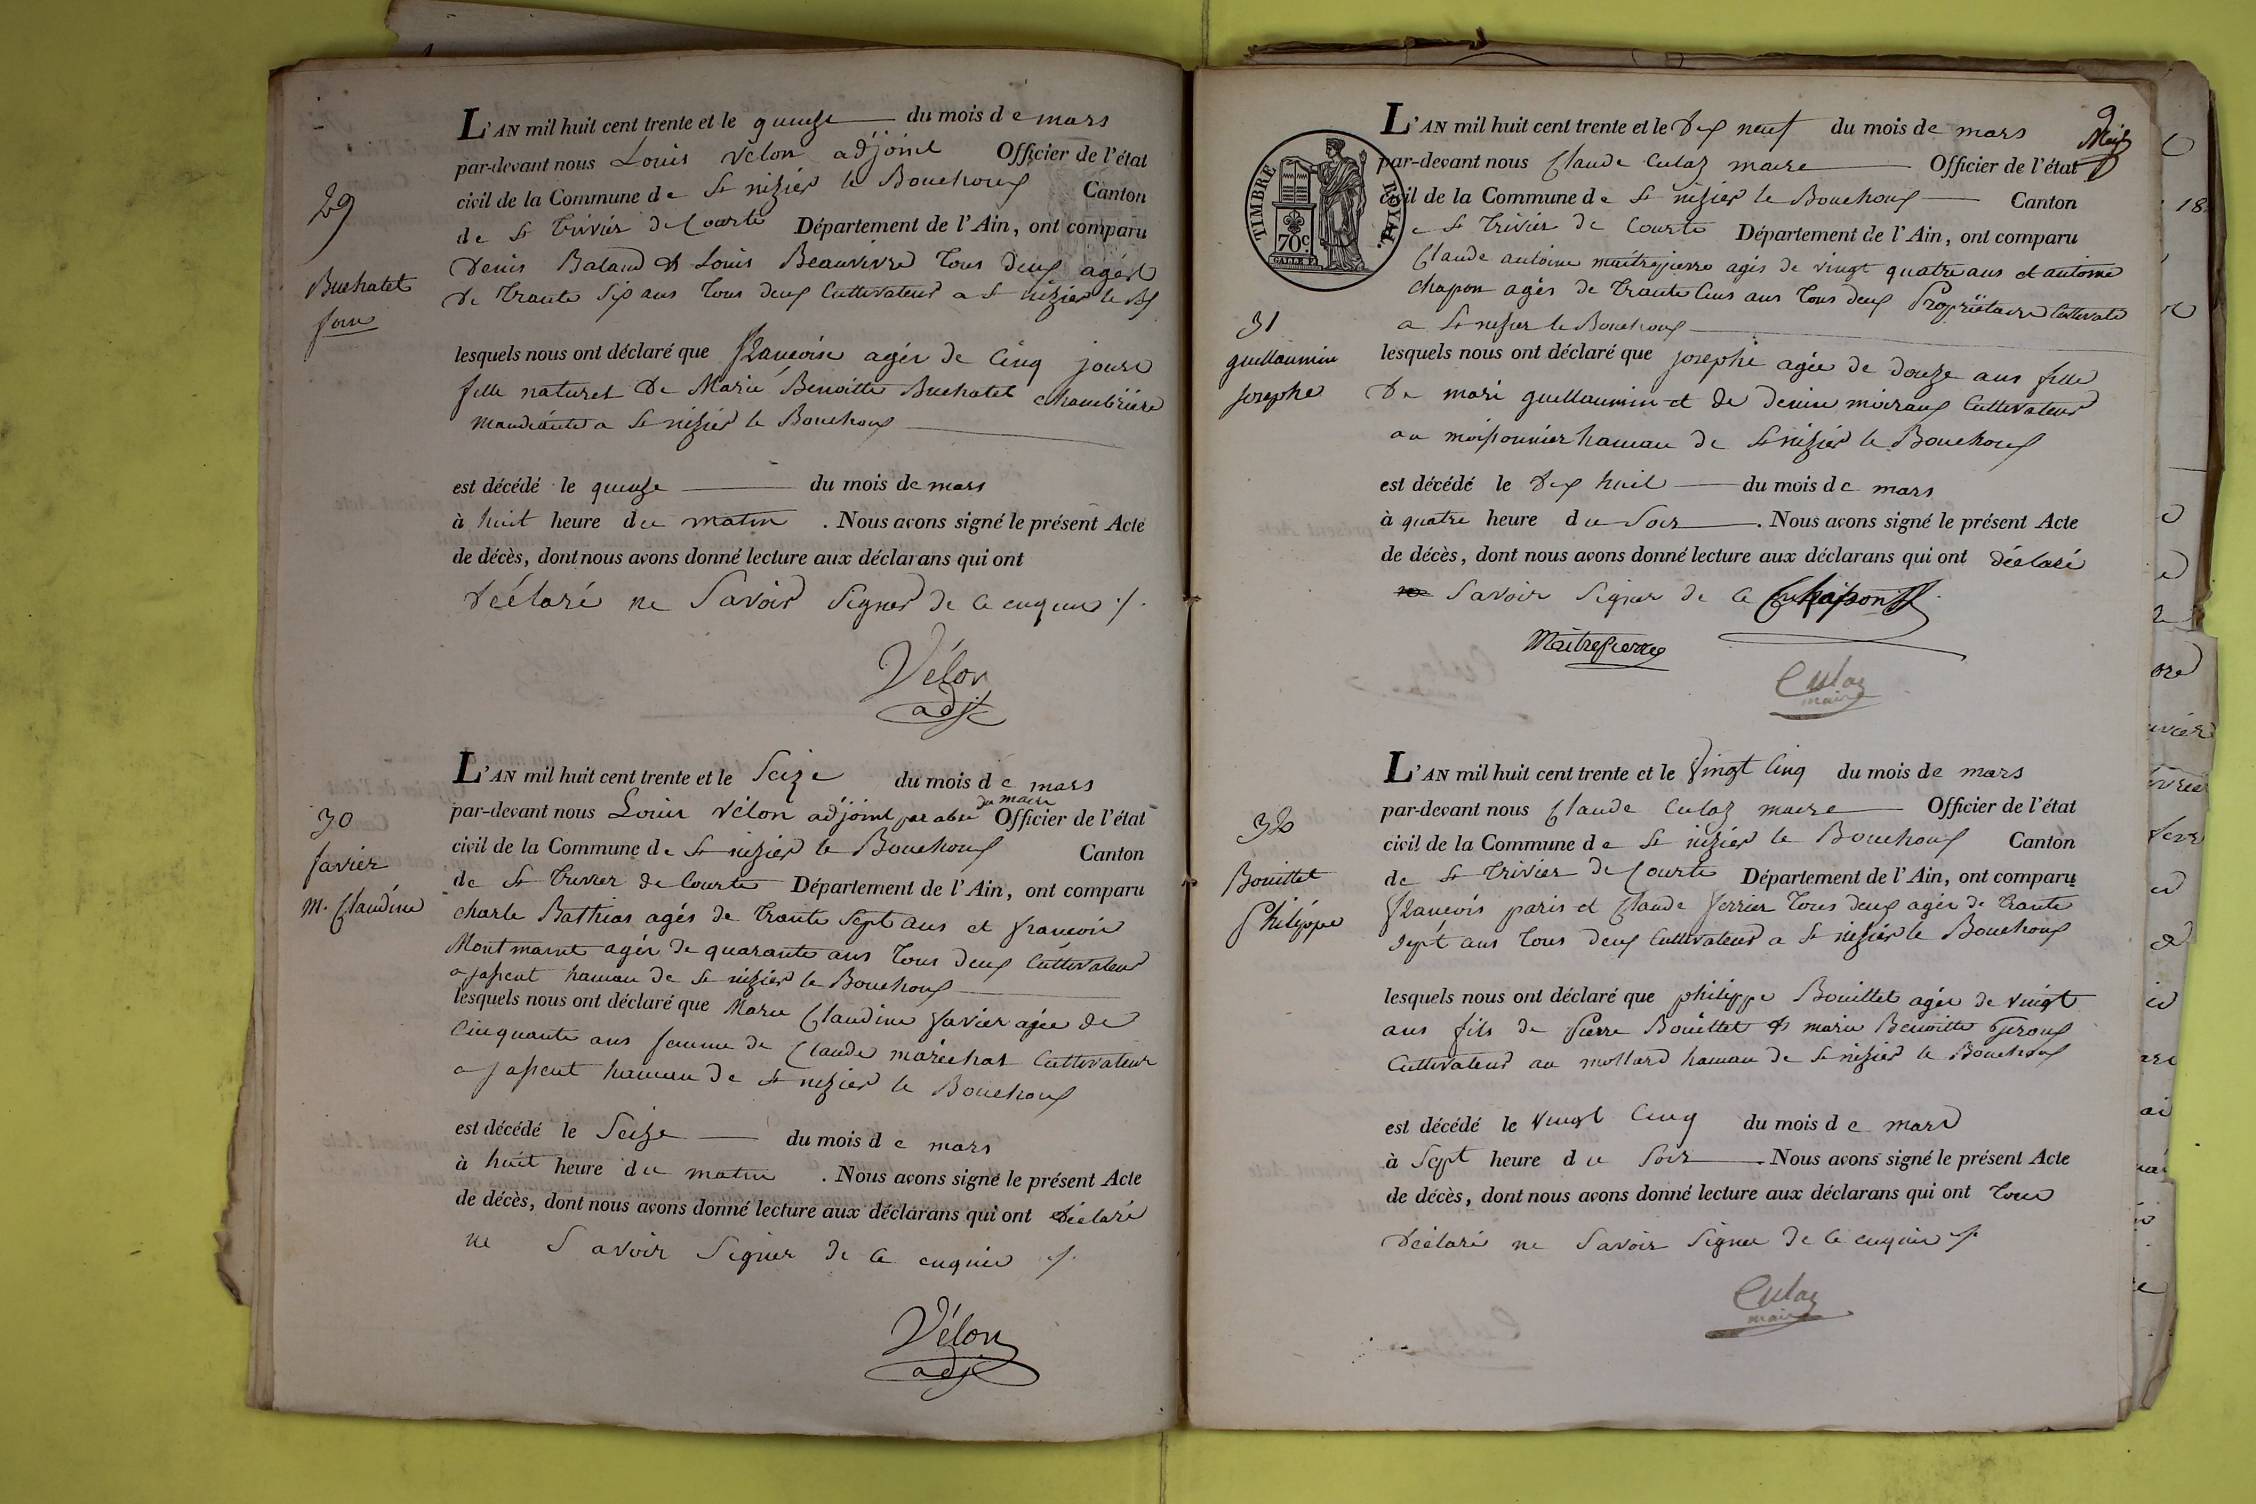 29
Buchatet
L'AN mil huit cent trente et le quinze du mois de mars
par-devant nous Louis Vélon adjoint Officier de l'état
civil de la Commune de St nizier le Bouchoux Canton
de St Trivier de Courte Département de l'Ain, ont comparu
Denis Baland & Louis Beauvivre tous deux agés
de trante six ans tous deux Cultivateur a St nizier le Bx
lesquels nous ont déclaré que françoise agée de Cinq jours
fille naturel de Marie Benoitte Buchatet chambrière
mandiante a St nizier le Bouchoux
est décédé le quinze du mois de mars
à huit heure du matin . Nous avons signé le présent Acte
de décès, dont nous avons donné lecture aux déclarans qui ont
déclaré ne Savoir Signer de ce enquis ./.
Vélon
adjt
30
favier
M. Claudine
L'AN mil huit cent trente et le Seize du mois de mars
par-devant nous Louis Vélon adjoint par abse du maire Officier de l'état
civil de la Commune de St nizier le Bouchoux Canton
de St Trivier de Courte Département de l'Ain, ont comparu
charle Bathias agés de trante Sept ans et françois
Montmaint agér de quarante ans tous deux Cultivateur
a jasseut hamau de St nizier le Bouchoux
lesquels nous ont déclaré que Marie Claudine favier agée de
Cinquante ans femme de Claude maréchat Cultivateur
a jasseut hamau de St nizier le Bouchoux
est décédé le Seize du mois de mars
à huit heure du matin . Nous avons signé le présent Acte
de décès, dont nous avons donné lecture aux déclarans qui ont déclaré
ne Savoir Signer de ce enquis ./.
Vélon
adjt
9
TIMBRE ROYAL.
70c.
31
guillaumin
josephe
L'AN mil huit cent trente et le dix neuf du mois de mars
par-devant nous Claude Culaz maire Officier de l'état
civil de la Commune de St nizier le Bouchoux Canton
de St Trivier de Courte Département de l'Ain, ont comparu
Claude antoine maitrepierre agés de vingt quatre ans et antoine
chapon agés de trante Cins ans tous deux Propriëtaire Cultivate
a St nizier le Bouchoux
lesquels nous ont déclaré que josephe agée de douze ans fille
de mari guillaumin et de denise moiraux Cultivateur
au moissonnier hamau de St nizier le Bouchoux
est décédé le dix huit du mois de mars
à quatre heure du Soir . Nous avons signé le présent Acte
de décès, dont nous avons donné lecture aux déclarans qui ont déclaré
ne Savoir Signer de ce Chapon
Maitrepierre
Culaz
maire
32
Bouillet
Philippe
L'AN mil huit cent trente et le vingt Cinq du mois de mars
par-devant nous Claude Culaz maire Officier de l'état
civil de la Commune de St nizier le Bouchoux Canton
de St Trivier de Courte Département de l'Ain, ont comparu
françois paris et Claude ferrier tous deux agér de trante
sept ans tous deux Cultivateur a St nizier le Bouchoux
lesquels nous ont déclaré que philippe Bouillet agée de vingt
ans fils de Pierre Bouillet & marie Benoitte Geroux
Cultivateur au mollard hamau de St nizier le Bouchoux
est décédé le vingt Cinq du mois de mars
à Sept heure du Soir . Nous avons signé le présent Acte
de décès, dont nous avons donné lecture aux déclarans qui ont tous
déclaré ne Savoir Signer de ce enquis ./.
Culaz
maire